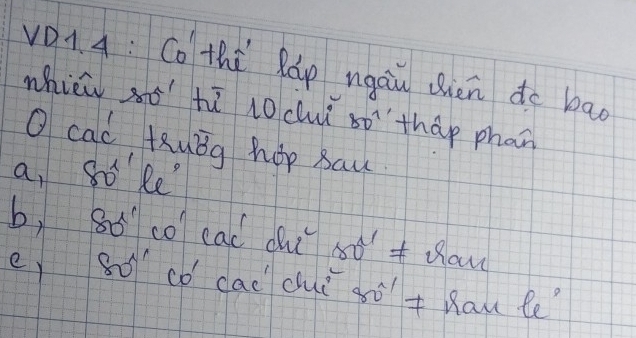 VD1.4: Có thể lập ngẫu nhiên đc bao
nhiêu số từ 10 chữ số thập phân
ở các trường hợp sau
a, Số lẻ
b, Số có các chữ số ≠ nhau
c, Số có các chữ số ≠ nhau lẻ